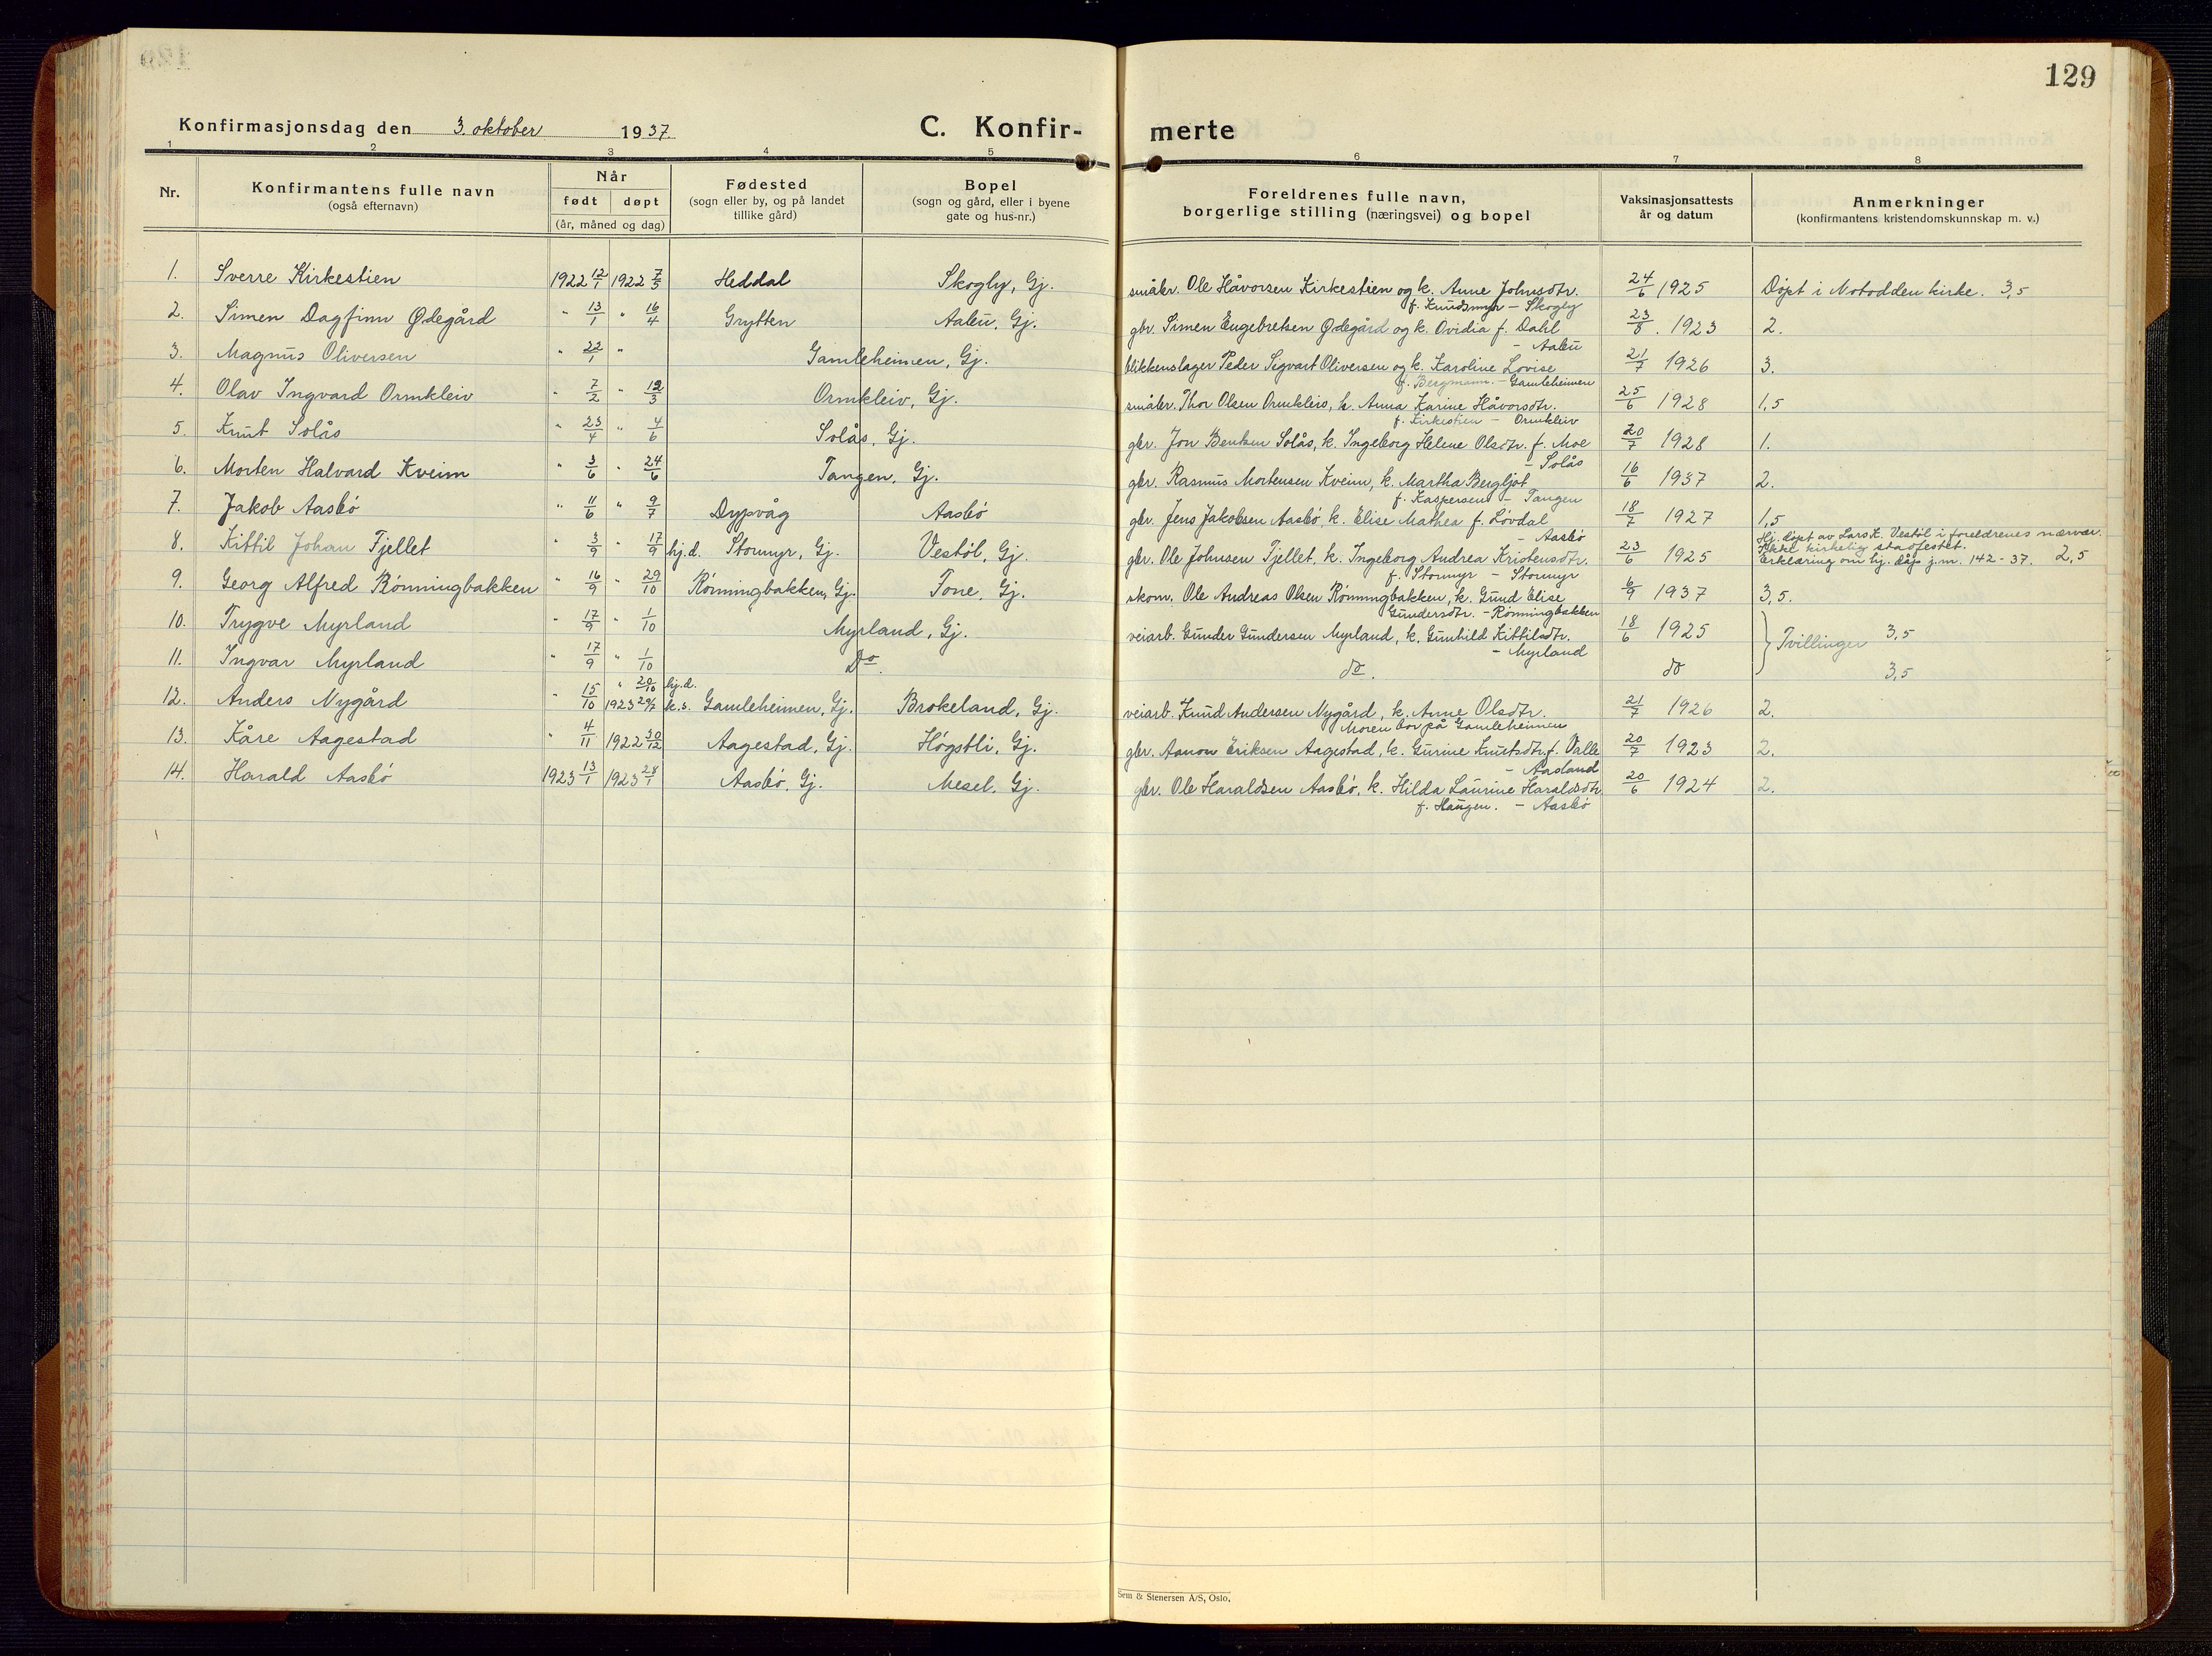 129
Konfirmasjonsdag den 3. oktober 1937.
C. Konfir-merte
1 2 3 4 5 6 7 8
Nr.
Konfirmantens fulle navn
(også efternavn)
Når
født døpt
(år, måned og dag)
Fødested
(sogn eller by, og på landet
tillike gård)
Bopel
(sogn og gård, eller i byene
gate og hus-nr.)
Foreldrenes fulle navn,
borgerlige stilling (næringsvei) og bopel
Vaksinasjonsattests
år og datum
Anmerkninger
(konfirmantens kristendomskunnskap m. v.)
1. Sverre Kirkestien 1922 12/1 1922 7/5 Heddal Skogly, Gj. småbr. Ole Håvorsen Kirkestien og k. Anne Johnsdtr. 24/6 1925 Døpt i Notodden kirke. 3,5
f. Knudsmyr – Skogly
2. Simen Dagfinn Ødegård " 13/1 " 16/4 Grytten Aaleu, Gj. gbr. Simen Engebretsen Ødegård og k. Ovidia f. Dahl 23/8. 1923 2.
– Aaleu
3. Magnus Oliversen " 22/1 " Gamleheimen, Gj. blikkenslager Peder Sigvart Oliversen og k. Karoline Lovise 21/7 1926 3.
f. Bergmann. – Gamleheimen
4. Olav Ingvard Ormkleiv " 7/2 " 12/3 Ormkleiv, Gj. småbr. Thor Olsen Ormkleiv, k. Anna Karine Håvorsdtr. 25/6 1928 1,5
f. Kirkestien – Ormkleiv
5. Knut Solås " 23/4 " 4/6 Solås, Gj. gbr. Jon Bentsen Solås, k. Ingeborg Helene Olsdtr. f. Moe 20/7 1928 1.
– Solås
6. Morten Halvard Kveim " 3/6 " 24/6 Tangen, Gj. gbr. Rasmus Mortensen Kveim, k. Martha Bergljot 16/6 1937 2.
f. Kaspersen – Tangen
7. Jakob Aasbö " 11/6 " 9/7 Dypvåg Aasbö gbr. Jens Jakobsen Aasbö, k. Elise Mathea f. Lövdal 18/7 1927 1,5
– Aasbö
8. Kittil Johan Fjellet " 3/9 " 17/9 hj.d. Stormyr, Gj. Vestöl, Gj. gbr. Ole Johnsen Fjellet, k. Ingeborg Andrea Kristensdtr. 23/6 1925 Hj. döpt av Lars K. Vestöl i foreldrenes nærvær.
Ikke kirkelig stadfestet.
Erklæring om hj. dåp j.nr. 142 - 37. 2,5
f. Stormyr – Stormyr
9. Georg Alfred Rönningbakken " 16/9 " 29/10 Rönningbakken, Gj. Tone, Gj. skom. Ole Andreas Olsen Rönningbakken, k. Gund Elise 6/9 1937 3,5.
Gundersdtr. – Rönningbakken
10. Trygve Myrland " 17/9 " 1/10 Myrland, Gj. veiarb. Gunder Gundersen Myrland, k. Gunhild Kittilsdtr. 18/6 1925 } Tvillinger 3,5
– Myrland
11. Ingvar Myrland " 17/9 " 1/10 Do. do. do 3,5
" 20/10 hj.d.
12. Anders Nygård " 15/10 1923 29/7 k.s. Gamleheimen, Gj. Brokeland, Gj. veiarb. Knud Andersen Nygård, k. Anne Olsdtr. 21/7 1926 2.
Moren bor på Gamleheimen
13. Kåre Aagestad " 4/11 1922 30/12 Aagestad, Gj. Högstli, Gj. gbr. Aanon Eriksen Aagestad, k. Gurine Knutsdtr. f. Valle 20/7 1923 2.
– Aasland
14. Harald Aasbö 1923 13/1 1923 28/1 Aasbö, Gj. Mesel, Gj. gbr. Ole Haraldsen Aasbö, k. Hilda Laurine Haraldsdtr 20/6 1924 2.
f. Haugen. – Aasbö
Sem & Stenersen A/S, Oslo.